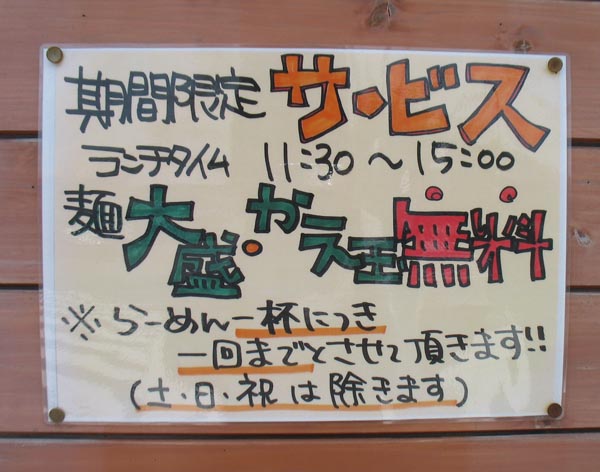 期間限定 サービス
ランチタイム 11:30～15:00
麺大盛・かえ玉無料
※らーめん一杯につき
一回までとさせて頂きます!!
(土・日・祝は除きます)